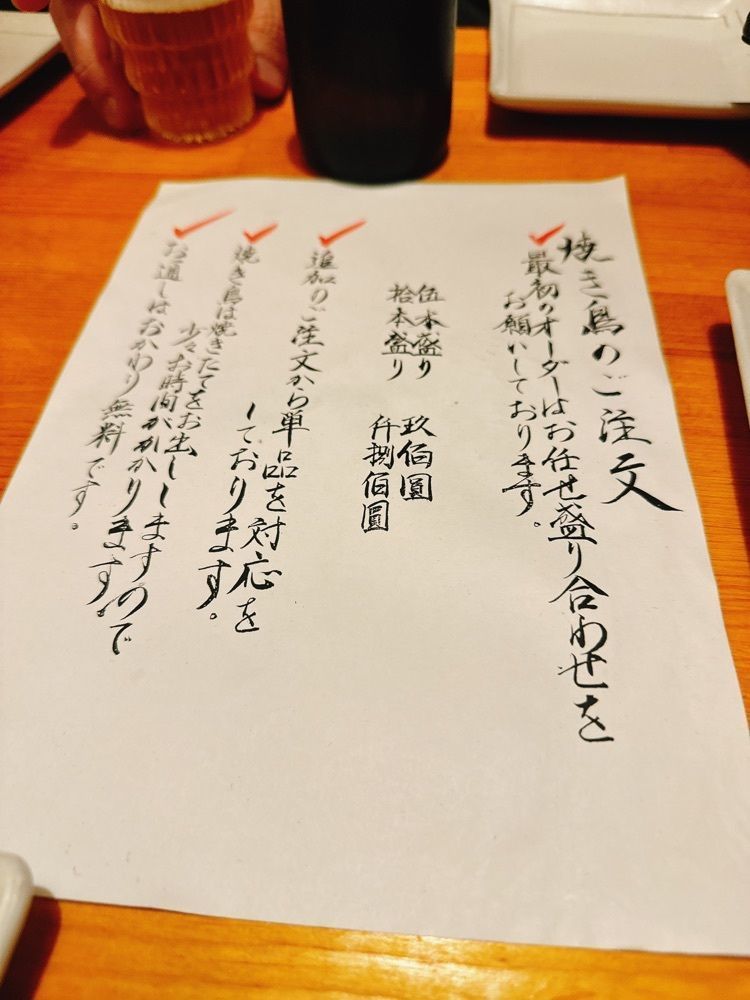 焼き鳥のご注文
最初のオーダーはお任せ盛り合わせを
お願いしております。
伍本盛り 玖佰圓
拾本盛り 仟捌佰圓
追加のご注文から単品を対応を
しております。
焼き鳥は焼きたてをお出ししますので
少々お時間がかかります。
お通しはおかわり無料です。